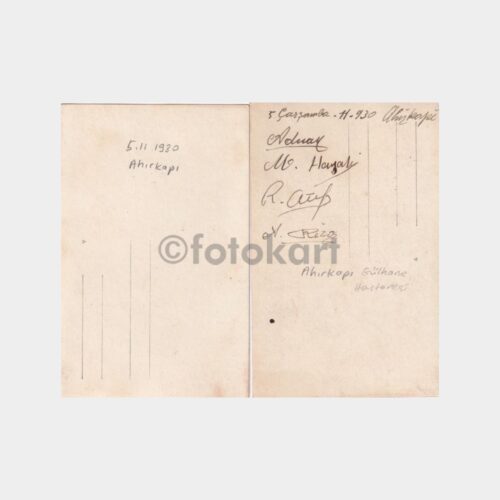 5.11 1930
Ahırkapı
5 Çarşamba - 11 - 930 Ahırkapı
Adnan
M. Hayati
R. Atıf
N. Rıza
©fotokart
Ahırkapı Gülhane
Hastanesi